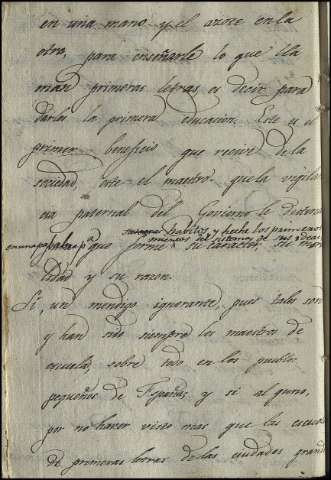 en una mano y el azote en la
otra, para enseñarle lo que lla
man primeras letras es decir para
darles la primera educacion. Este es el
primer beneficio que recive de la
sociedad, este el maestro que la vigilan
cia paternal del Govierno le destina
habitos, y heche los primeros
mientos del sistema de sus ideas
en una palabra pª que forme su caracter, su mora
lidad y su razon.
Si, un mendigo ignorante, pues tales son
y han sido siempre los maestros de
escuela, sobre todo en los pueblos
pequeños de España, y si alguno,
por no haver visto mas que las escuelas
de primeras letras de las ciudades grandes